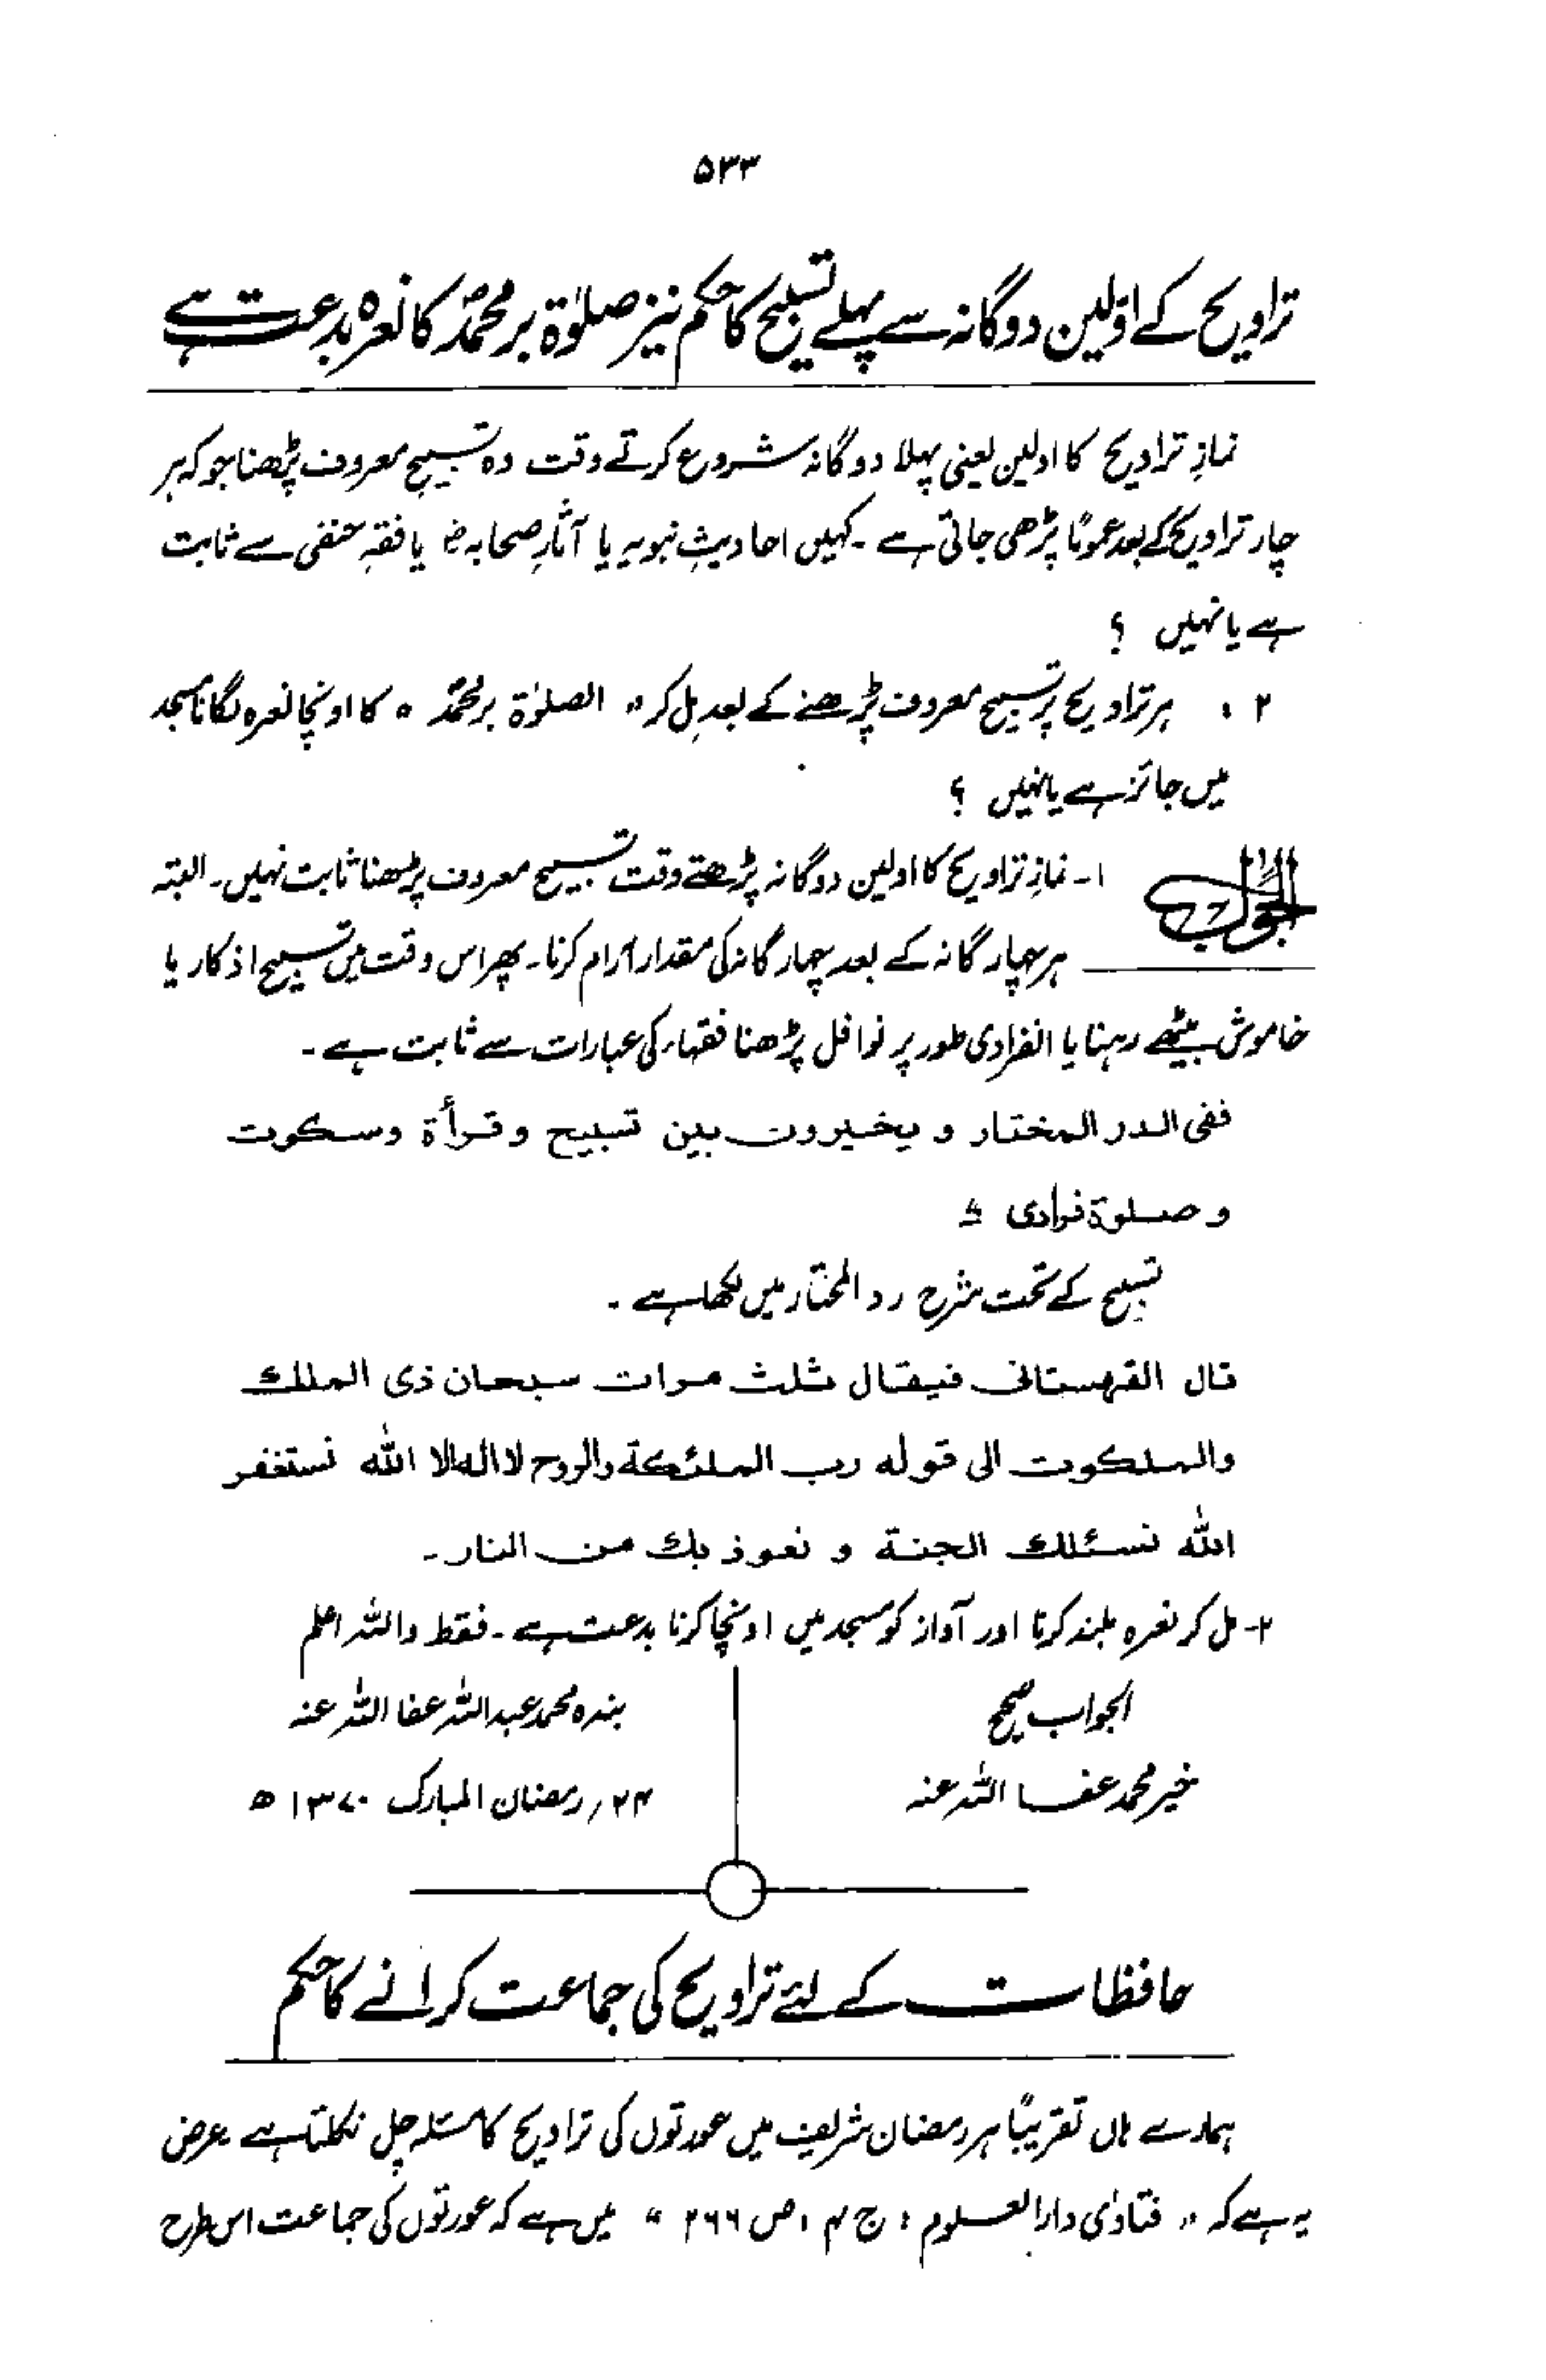 ۵۳۳
تراویح کے اوّلین دوگانہ سے پہلے تسبیح کا حکم نیز صلوٰۃ بر محمدؐ کا نعرہ بدعت ہے
نمازِ تراویح کا اولین یعنی پہلا دوگانہ شروع کرتے وقت وہ تسبیحِ معروف پڑھنا جو کہ ہر
چار تراویح کے بعد عموماً پڑھی جاتی ہے ۔ کہیں احادیثِ نبویہ یا آثارِ صحابہ رض یا فقہِ حنفی سے ثابت
ہے یا نہیں ؟
۲ : ہر تراویح پر تسبیح معروف پڑھنے کے بعد مل کر " الصلوٰۃ بر محمدؐ " کا اونچا نعرہ لگانا مسجد
میں جائز ہے یا نہیں ؟
الجواب ۱۔ نمازِ تراویح کا اولین دوگانہ پڑھتے وقت تسبیح معروف پڑھنا ثابت نہیں ۔ البتہ
ہر چہار گانہ کے بعد چہار گانہ کی مقدار آرام کرنا ۔ پھر اس وقت میں تسبیح اذکار یا
خاموش بیٹھے رہنا یا انفرادی طور پر نوافل پڑھنا فقہاء کی عبارات سے ثابت ہے ۔
ففی الدر المختار و یخیرون بین تسبیح و قرأۃ وسکوت
و صلوۃ فرادی
تسبیح کے تحت شرح رد المحتار میں لکھا ہے ۔
قال القهستانی فیقال ثلث مرات سبحان ذی الملك
والملکوت الی قوله رب الملئکة والروح لا اله الا الله نستغفر
الله نسئلك الجنة و نعوذ بك من النار ۔
۲۔ مل کر نعرہ بلند کرنا اور آواز کو مسجد میں اونچا کرنا بدعت ہے ۔ فقط واللہ اعلم
الجواب صحیح
خیر محمد عفا اللہ عنہ
بندہ محمد عبداللہ عفا اللہ عنہ
۲۴ ؍ رمضان المبارک ۱۳۷۰ ھ
حافظات کے لئے تراویح کی جماعت کرانے کا حکم
ہمارے ہاں تقریباً ہر رمضان شریف میں عورتوں کی تراویح کا مسئلہ چل نکلتا ہے ۔ عرض
یہ ہے کہ " فتاویٰ دارالعلوم : ج ۴ ، ص ۲۶۶ " میں ہے کہ عورتوں کی جماعت اس طرح